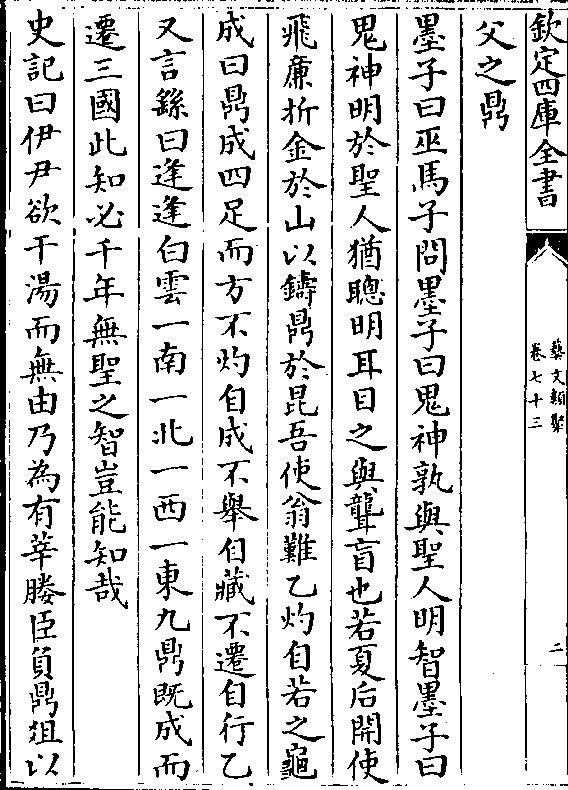 欽定四庫全書
藝文類聚
卷七十三
二
父之鼎
墨子曰巫馬子問墨子曰鬼神孰與聖人明智墨子曰
鬼神明於聖人猶聰明耳目之與聾盲也若夏后開使
飛廉折金於山以鑄鼎於昆吾使翁難乙灼自若之龜
成曰鼎成四足而方不灼自成不舉自藏不遷自行乙
又言繇曰逢逢白雲一南一北一西一東九鼎既成而
遷三國此知必千年無聖之智豈能知哉
史記曰伊尹欲干湯而無由乃為有莘媵臣負鼎俎以